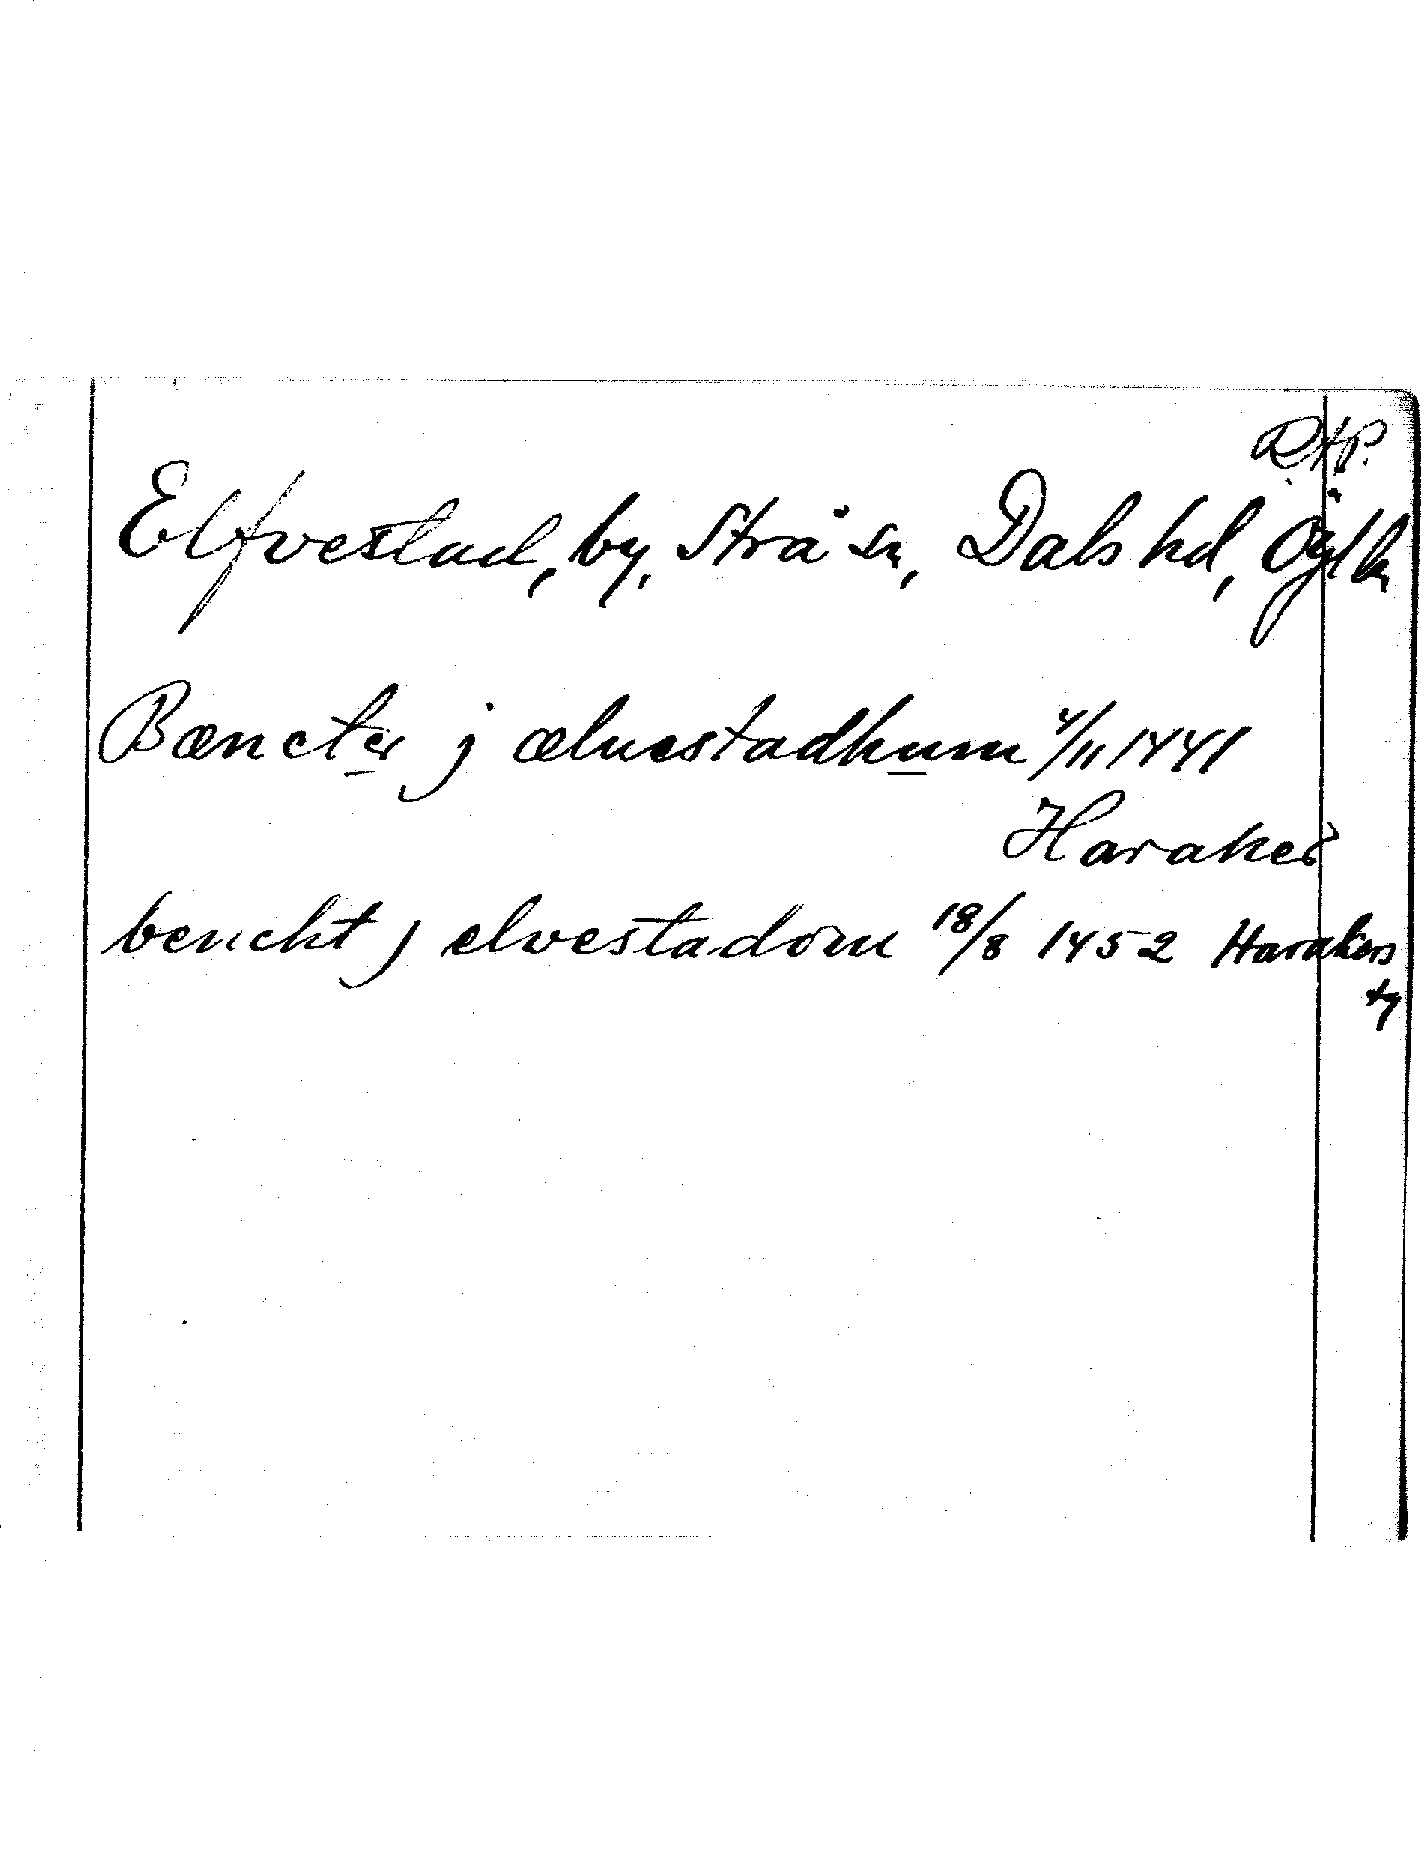 RAP.
Elfvestad, by, Strå sn, Dals hd, Ögl ln
Bæncter j æluestadhum 4/11 1441
Haraker
bencht j elvestadom 18/8 1452 Harakers
ty